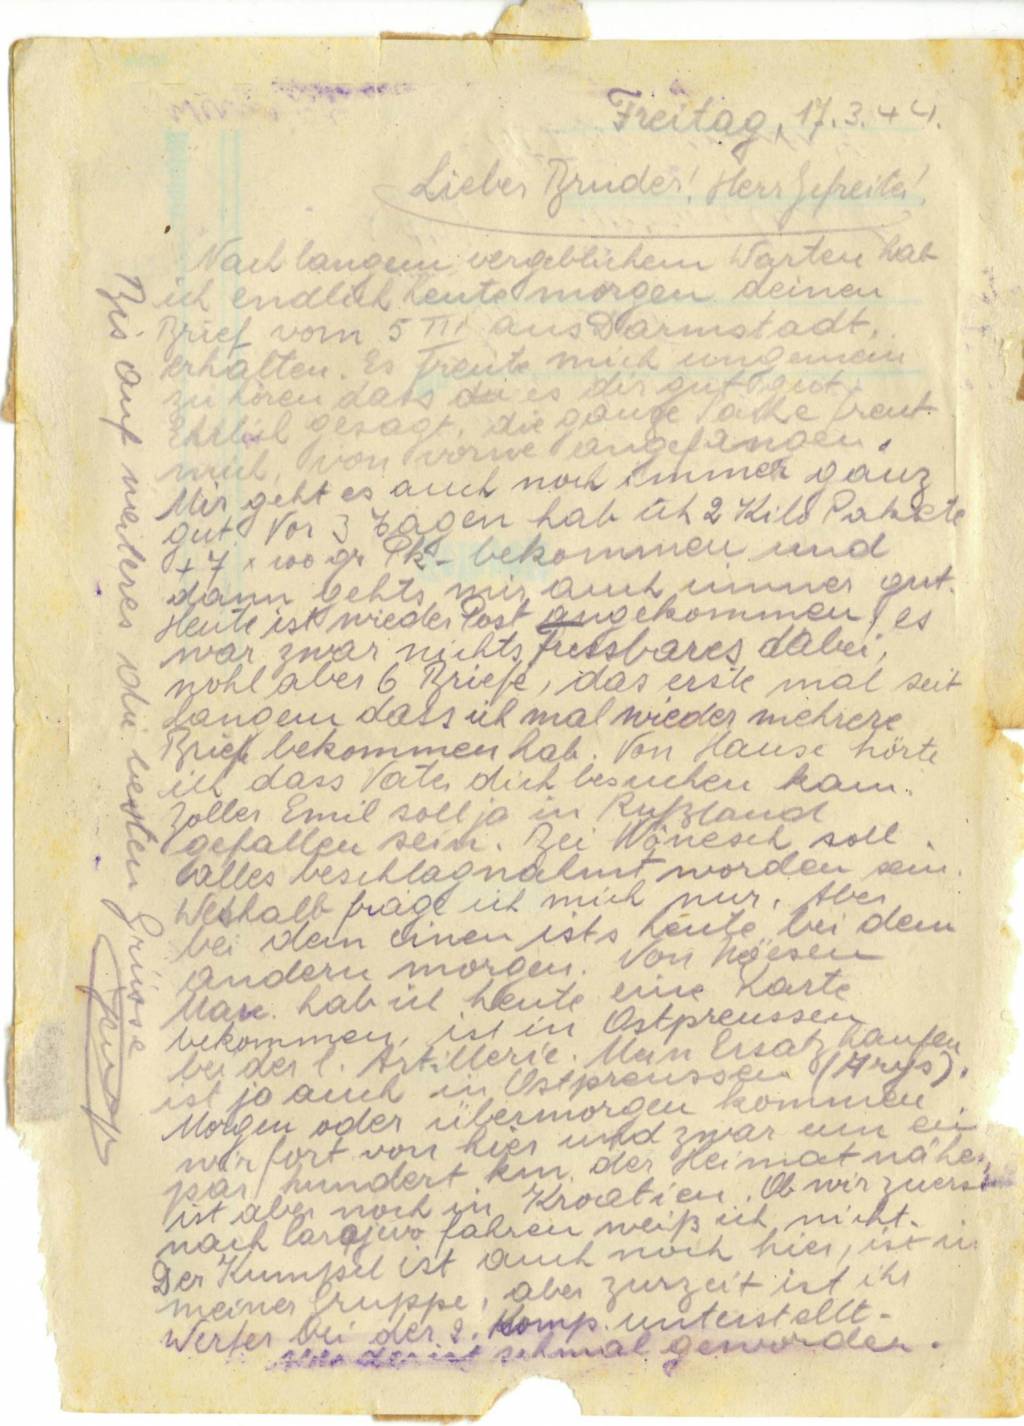 Freitag, 17.3.44.
Lieber Bruder! Herr Gefreiter!
Nach langem vergeblichem Warten hab
ich endlich heute morgen deinen
Brief vom 5 III aus Darmstadt,
erhalten. Es freute mich ungemein
zu hören dass es dir gut gut.
Ehrlich gesagt, die ganze Sache freut
mich, von vorne angefangen.
Mir geht es auch noch immer ganz
gut. Vor 3 Tagen hab ich 2 Kilo Pakete
+ 7 x 100 gr Pk. bekommen und
dann gehts mir auch immer gut.
Heute ist wieder Post angekommen, es
war zwar nichts Fressbares dabei,
wohl aber 6 Briefe, das erste mal seit
langem dass ich mal wieder mehrere
Briefe bekommen hab. Von Hause hörte
ich dass Vater dich besuchen kam.
Zoller Emil soll ja in Rußland
gefallen sein. Bei soll
alles beschlagnahmt worden sein.
Weshalb frage ich mich nur. Aber
bei dem einen ists heute bei dem
andern morgen. Von
hab ich heute eine Karte
bekommen, ist in Ostpreussen
bei der l. Artillerie. Mein Ersatzhaufen
ist ja auch in Ostpreussen (Arys).
Morgen oder übermorgen kommen
wir fort von hier und zwar um ein
par hundert km. der Heimat näher,
ist aber noch in Kroatien. Ob wir zuerst
nach Sarajevo fahren weiß ich nicht.
Der Kumpel ist auch noch hier, ist in
meiner Gruppe, aber zurzeit ist ihr
Werfer bei der 2. Komp. unterstellt.
schmal geworden.
Bis auf weiteres die besten Grüsse